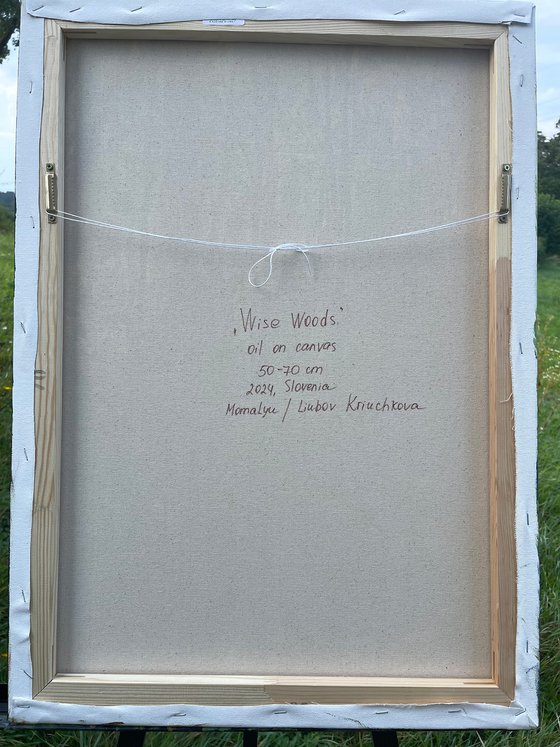 „Wise Woods”
oil on canvas
50-70 cm
2024, Slovenia
Mamalyu / Liubov Kriuchkova